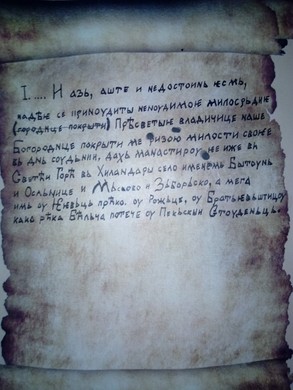 I.... И азь, аште и недостоинь ѥсмь,
надѣю се приноудити неноудимоѥ милосрьдиѥ
(городице-покрыти) Прѣсветыѥ владичице наше
Богородице покрыти ме ризою милости своѥѥ
вь дьнь соудьнии, дахь манастироу иже вь
Светѣи Горѣ вь Хиландары село именемь Бытоунь
и Осльнице и Мысово и Забрьско, а мега
имь оу прѣко. оу Рожьце, оу
како рѣка Бѣлъча потече оу Пекьскии Стоуденьць.